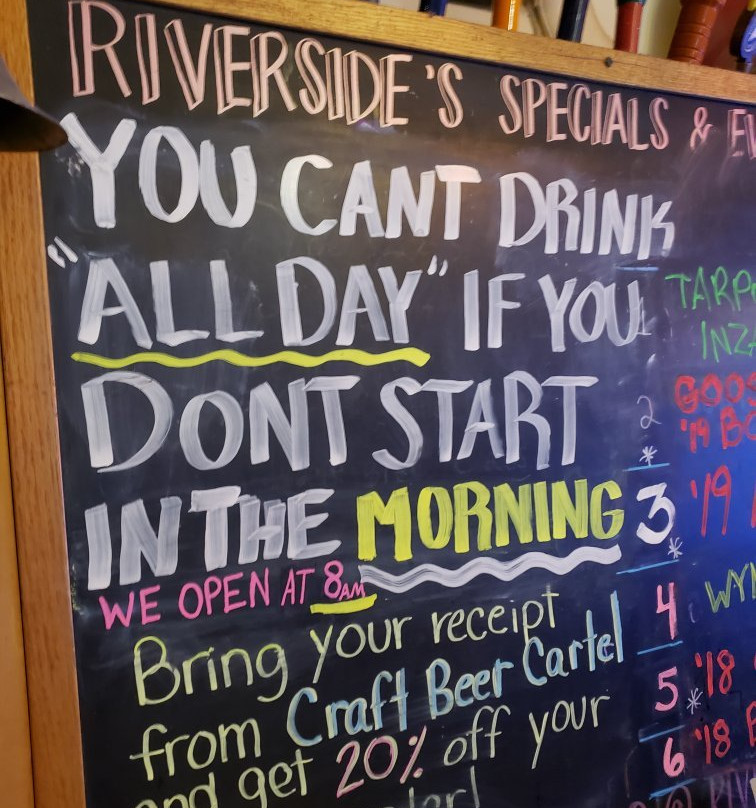 RIVERSIDE'S SPECIALS &
YOU CANT DRINK
"ALL DAY" IF YOU
DONT START
IN THE MORNING
WE OPEN AT 8AM
Bring your receipt
from Craft Beer Cartel
and get 20% off your
1
2
*
'19
3
'19
*
4
5
'18
*
6
'18